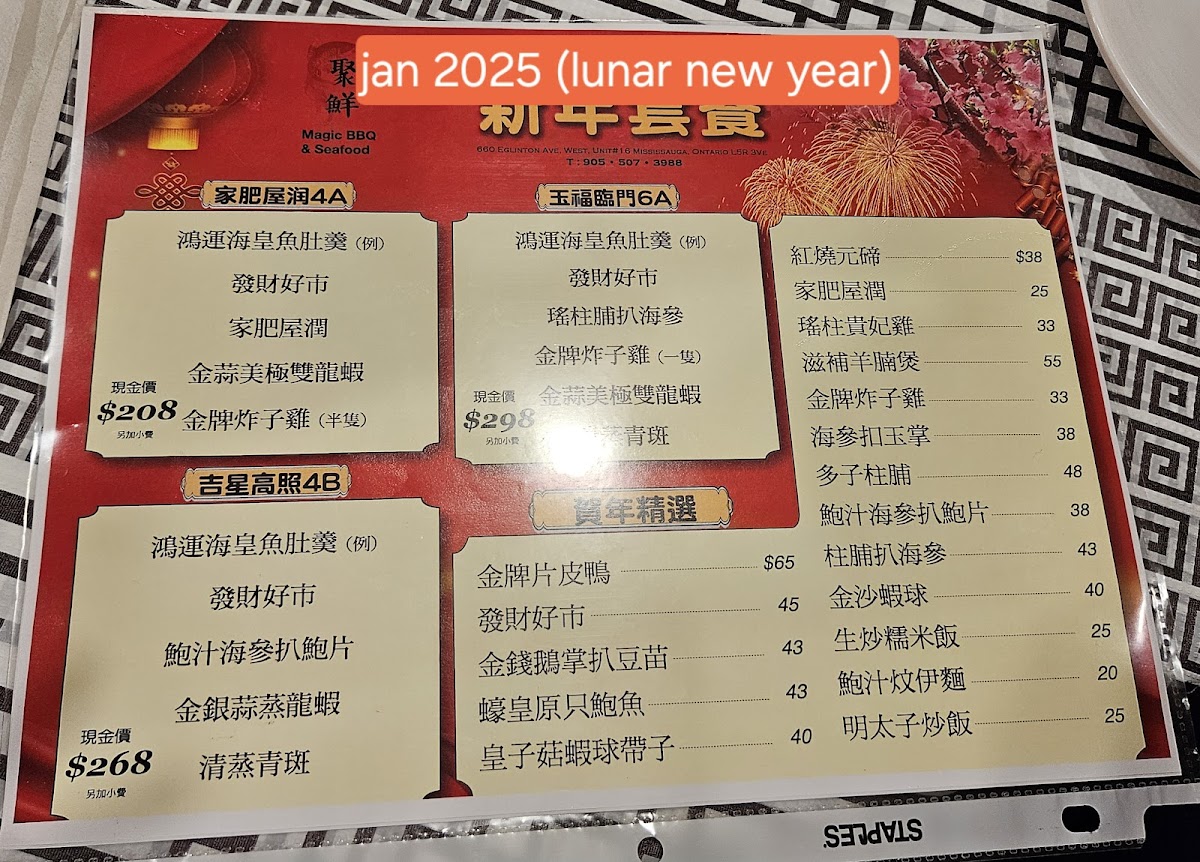 jan 2025 (lunar new year)
聚鮮
Magic BBQ
& Seafood
新年套餐
660 EGLINTON AVE. WEST, UNIT#16 MISSISSAUGA, ONTARIO L5R 3V
T : 905 • 507 • 3988
家肥屋润4A
鴻運海皇魚肚羹 (例)
發財好市
家肥屋潤
金蒜美極雙龍蝦
金牌炸子雞 (半隻)
現金價
$208
另加小費
吉星高照4B
鴻運海皇魚肚羹 (例)
發財好市
鮑汁海參扒鮑片
金銀蒜蒸龍蝦
清蒸青斑
現金價
$268
另加小費
玉福臨門6A
鴻運海皇魚肚羹 (例)
發財好市
瑤柱脯扒海參
金牌炸子雞 (一隻)
金蒜美極雙龍蝦
蒸青斑
現金價
$298
另加小費
賀年精選
金牌片皮鴨 $65
發財好市 45
金錢鵝掌扒豆苗 43
蠔皇原只鮑魚 43
皇子菇蝦球帶子 40
紅燒元蹄 $38
家肥屋潤 25
瑤柱貴妃雞 33
滋補羊腩煲 55
金牌炸子雞 33
海參扣玉掌 38
多子柱脯 48
鮑汁海參扒鮑片 38
柱脯扒海參 43
金沙蝦球 40
生炒糯米飯 25
鮑汁炆伊麵 20
明太子炒飯 25
STAPLES